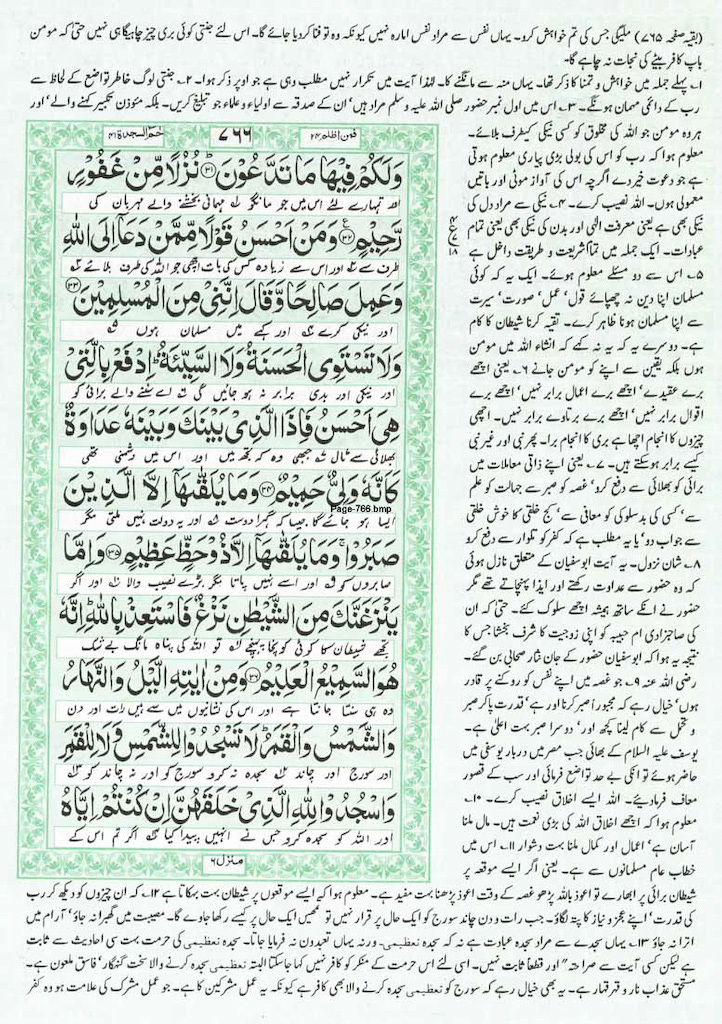 (بقیہ صفحہ ۷۶۵) ملیگی جس کی تم خواہش کرو۔ یہاں نفس سے مراد نفس امارہ نہیں کیونکہ وہ تو فنا کر دیا جائے گا۔ اس لئے جنتی کوئی بری چیز چاہیگا ہی نہیں حتیٰ کہ مومن
باپ کافر بیٹے کی نجات نہ چاہے گا۔
۱۔ پہلے جملہ میں خواہش و تمنا کا ذکر تھا۔ یہاں منہ سے مانگنے کا۔ لہٰذا آیت میں تکرار نہیں مطلب وہی ہے جو اوپر ذکر ہوا۔ ۲۔ جنتی لوگ خاطر تواضع کے لحاظ سے
رب کے دائمی مہمان ہونگے۔ ۳۔ اس میں اول نمبر حضور صلی اللہ علیہ وسلم مراد ہیں' ان کے صدقہ سے اولیاء و علماء جو تبلیغ کریں۔ بلکہ مؤذن تکبیر کہنے والے' اور
حٰم السجدۃ ۴۱
۷۶۶
فمن اظلم ۲۴
وَلَكُمْ فِيْهَا مَا تَدَّعُوْنَ ۳۱ نُزُلًا مِّنْ غَفُوْرٍ
تمہارے لئے اس میں جو مانگو مہمانی بخشنے والے مہربان کی
رَّحِيْمٍ ۳۲ وَمَنْ اَحْسَنُ قَوْلًا مِّمَّنْ دَعَآ اِلَى اللّٰهِ
طرف سے اور اس سے زیادہ کس کی بات اچھی جو اللہ کی طرف بلائے
وَعَمِلَ صَالِحًا وَّقَالَ اِنَّنِيْ مِنَ الْمُسْلِمِيْنَ ۳۳
اور نیکی کرے اور کہے میں مسلمان ہوں
وَلَا تَسْتَوِي الْحَسَنَةُ وَلَا السَّيِّئَةُ اِدْفَعْ بِالَّتِيْ
اور نیکی اور بدی برابر نہ ہو جائیں گی اے سننے والے برائی کو
هِيَ اَحْسَنُ فَاِذَا الَّذِيْ بَيْنَكَ وَبَيْنَهٗ عَدَاوَةٌ
بھلائی سے ٹال جبھی وہ کہ تجھ میں اور اس میں دشمنی تھی
كَاَنَّهٗ وَلِيٌّ حَمِيْمٌ ۳۴ وَمَا يُلَقّٰىهَآ اِلَّا الَّذِيْنَ
Page-766.bmp
ایسا ہو جائے گا جیسا کہ گہرا دوست اور یہ دولت نہیں ملتی مگر
صَبَرُوْا وَمَا يُلَقّٰىهَآ اِلَّا ذُوْ حَظٍّ عَظِيْمٍ ۳۵ وَاِمَّا
صابروں کو اور اسے نہیں پاتا مگر بڑے نصیب والا اور اگر
يَنْزَغَنَّكَ مِنَ الشَّيْطٰنِ نَزْغٌ فَاسْتَعِذْ بِاللّٰهِ اِنَّهٗ
تجھے شیطان کا کوئی کونچا پہنچے تو اللہ کی پناہ مانگ بے شک
هُوَ السَّمِيْعُ الْعَلِيْمُ ۳۶ وَمِنْ اٰيٰتِهِ الَّيْلُ وَالنَّهَارُ
وہ ہی سنتا جانتا ہے اور اس کی نشانیوں میں سے ہیں رات اور دن
وَالشَّمْسُ وَالْقَمَرُ لَا تَسْجُدُوْا لِلشَّمْسِ وَلَا لِلْقَمَرِ
اور سورج اور چاند سجدہ نہ کرو سورج کو اور نہ چاند کو
وَاسْجُدُوْا لِلّٰهِ الَّذِيْ خَلَقَهُنَّ اِنْ كُنْتُمْ اِيَّاهُ
اور اللہ کو سجدہ کرو جس نے انہیں پیدا کیا اگر تم اس کے
منزل ۶
ع
۱۸
ہر وہ مومن جو اللہ کی مخلوق کو کسی نیکی کیطرف بلائے۔
معلوم ہوا کہ رب کو اس کی بولی بڑی پیاری معلوم ہوتی
ہے جو دعوت خیر دے اگرچہ اس کی آواز موٹی اور باتیں
معمولی ہوں۔ اللہ نصیب کرے۔ ۴۔ نیکی سے مراد دل کی
نیکی بھی ہے یعنی معرفت الٰہی اور بدن کی نیکی بھی یعنی تمام
عبادات۔ ایک جملہ میں تمام شریعت و طریقت داخل ہے
۵۔ اس سے دو مسئلے معلوم ہوئے۔ ایک یہ کہ کوئی
مسلمان اپنا دین نہ چھپائے قول' عمل' صورت' سیرت
سے اپنا مسلمان ہونا ظاہر کرے۔ تقیہ کرنا شیطان کا کام
ہے۔ دوسرے یہ کہ یہ نہ کہے کہ انشاء اللہ میں مومن
ہوں بلکہ یقین سے اپنے کو مومن جانے ۶۔ یعنی اچھے
برے عقیدے' اچھے برے اعمال برابر نہیں' اچھے برے
اقوال برابر نہیں' اچھے برے برتاوے برابر نہیں۔ اچھی
چیزوں کا انجام اچھا ہے بری کا انجام برا۔ پھر نبی اور غیر نبی
کیسے برابر ہوسکتے ہیں۔ ۷۔ یعنی اپنے ذاتی معاملات میں
برائی کو بھلائی سے دفع کرو' غصہ کو صبر سے جہالت کو علم
سے' کسی کی بدسلوکی کو معافی سے' کج خلقی کا خوش خلقی
سے جواب دو' یا یہ مطلب ہے کہ کفر کو تلوار سے دفع کرو
۸۔ شان نزول۔ یہ آیت ابوسفیان کے متعلق نازل ہوئی
کہ وہ حضور سے عداوت رکھتے اور ایذا پہنچاتے تھے مگر
حضور نے انکے ساتھ ہمیشہ اچھے سلوک کئے۔ حتیٰ کہ ان
کی صاحبزادی ام حبیبہ کو اپنی زوجیت کا شرف بخشا جس کا
نتیجہ یہ ہوا کہ ابوسفیان حضور کے جان نثار صحابی بن گئے۔
رضی اللہ عنہ ۹۔ جو غصہ میں اپنے نفس کو روکنے پر قادر
ہوں' خیال رہے کہ مجبور کا صبر کرنا اور ہے' قدرت پا کر صبر
و تحمل سے کام لینا کچھ اور' دوسرا صبر بہت اعلیٰ ہے۔
یوسف علیہ السلام کے بھائی جب مصر میں دربار یوسفی میں
حاضر ہوئے تو انکی بے حد تواضع فرمائی اور سب کے قصور
معاف فرمادیئے۔ اللہ ایسے اخلاق نصیب کرے۔ ۱۰۔
معلوم ہوا کہ اچھے اخلاق اللہ کی بڑی نعمت ہیں۔ مال ملنا
آسان ہے' اعمال اور کمال ملنا بہت دشوار ۱۱۔ اس میں
خطاب عام مسلمانوں سے ہے۔ یعنی اگر ایسے موقعہ پر
شیطان برائی پر ابھارے تو اعوذ باللہ پڑھو غصہ کے وقت اعوذ پڑھنا بہت مفید ہے۔ معلوم ہوا کہ ایسے موقعوں پر شیطان بہت بہکاتا ہے ۱۲۔ کہ ان چیزوں کو دیکھ کر رب
کی قدرت' اپنے عجز و نیاز کا پتہ لگاؤ۔ جب رات و دن چاند سورج کو ایک حال پر قرار نہیں تو تمہیں ایک حال پر کیسے رکھا جاوے گا۔ مصیبت میں گھبرا نہ جاؤ' آرام میں
اترا نہ جاؤ ۱۳۔ یہاں سجدے سے مراد سجدہ عبادت ہے نہ کہ سجدہ تعظیمی۔ ورنہ یہاں تعبدون نہ فرمایا جاتا۔ سجدہ تعظیمی کی حرمت بہت سی احادیث سے ثابت
ہے لیکن کسی آیت سے صراحتہ" اور قطعاً ثابت نہیں۔ اسی لئے اس حرمت کے منکر کو کافر نہیں کہا جاسکتا البتہ تعظیمی سجدہ کرنے والا سخت گنہگار' فاسق ملعون ہے۔
مستحق عذاب نار و قہر قہار ہے۔ یہ بھی خیال رہے کہ سورج کو تعظیمی سجدہ کرنے والا بھی کافر ہے کیونکہ یہ عمل مشرکین کا ہے۔ جو عمل مشرک کی علامت ہو وہ کفر